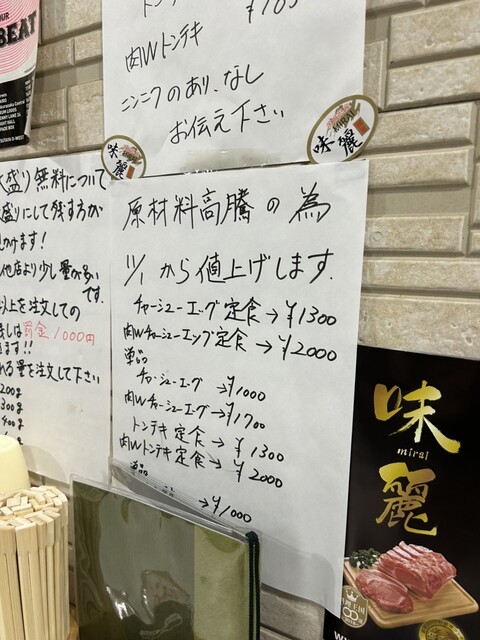 BEAT
トンテキ
¥1
肉Wトンテキ
ニンニクのあり、なし
お伝え下さい
味麗
味麗
盛り無料について
盛りにして残す方が
かけます!
他店より少し量が多い
です。
以上を注文しての
残しは罰金1000円
ます!!
れる量を注文して下さい
200g
300g
400g
原材料高騰の為
から値上げします.
チャーシューエッグ定食→¥1300
肉Wチャーシューエッグ定食→¥2000
単品
チャーシューエッグ→¥1000
肉Wチャーシューエッグ→¥1700
トンテキ定食→¥1300
肉Wトンテキ定食→¥2000
単品
→¥1000
味
miral
麗